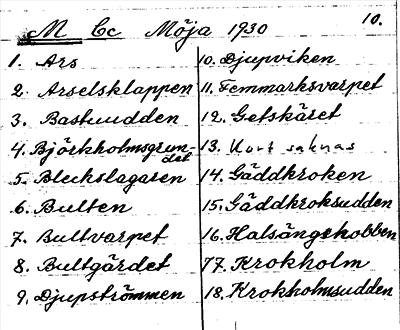 M Cc Möja 1930 10.
1. Ars
2. Arselsklappen
3. Bastuudden
4. Björkholmsgrun-
det
5. Bleckslagaren
6. Bulten
7. Bultvarpet
8. Bultgärdet
9. Djupströmmen
10. Djupviken
11. Femmarksvarpet
12. Getskäret
13. Kort saknas
14. Gäddkroken
15. Gäddkroksudden
16. Halsängshobben
17. Krokholm
18. Krokholmsudden